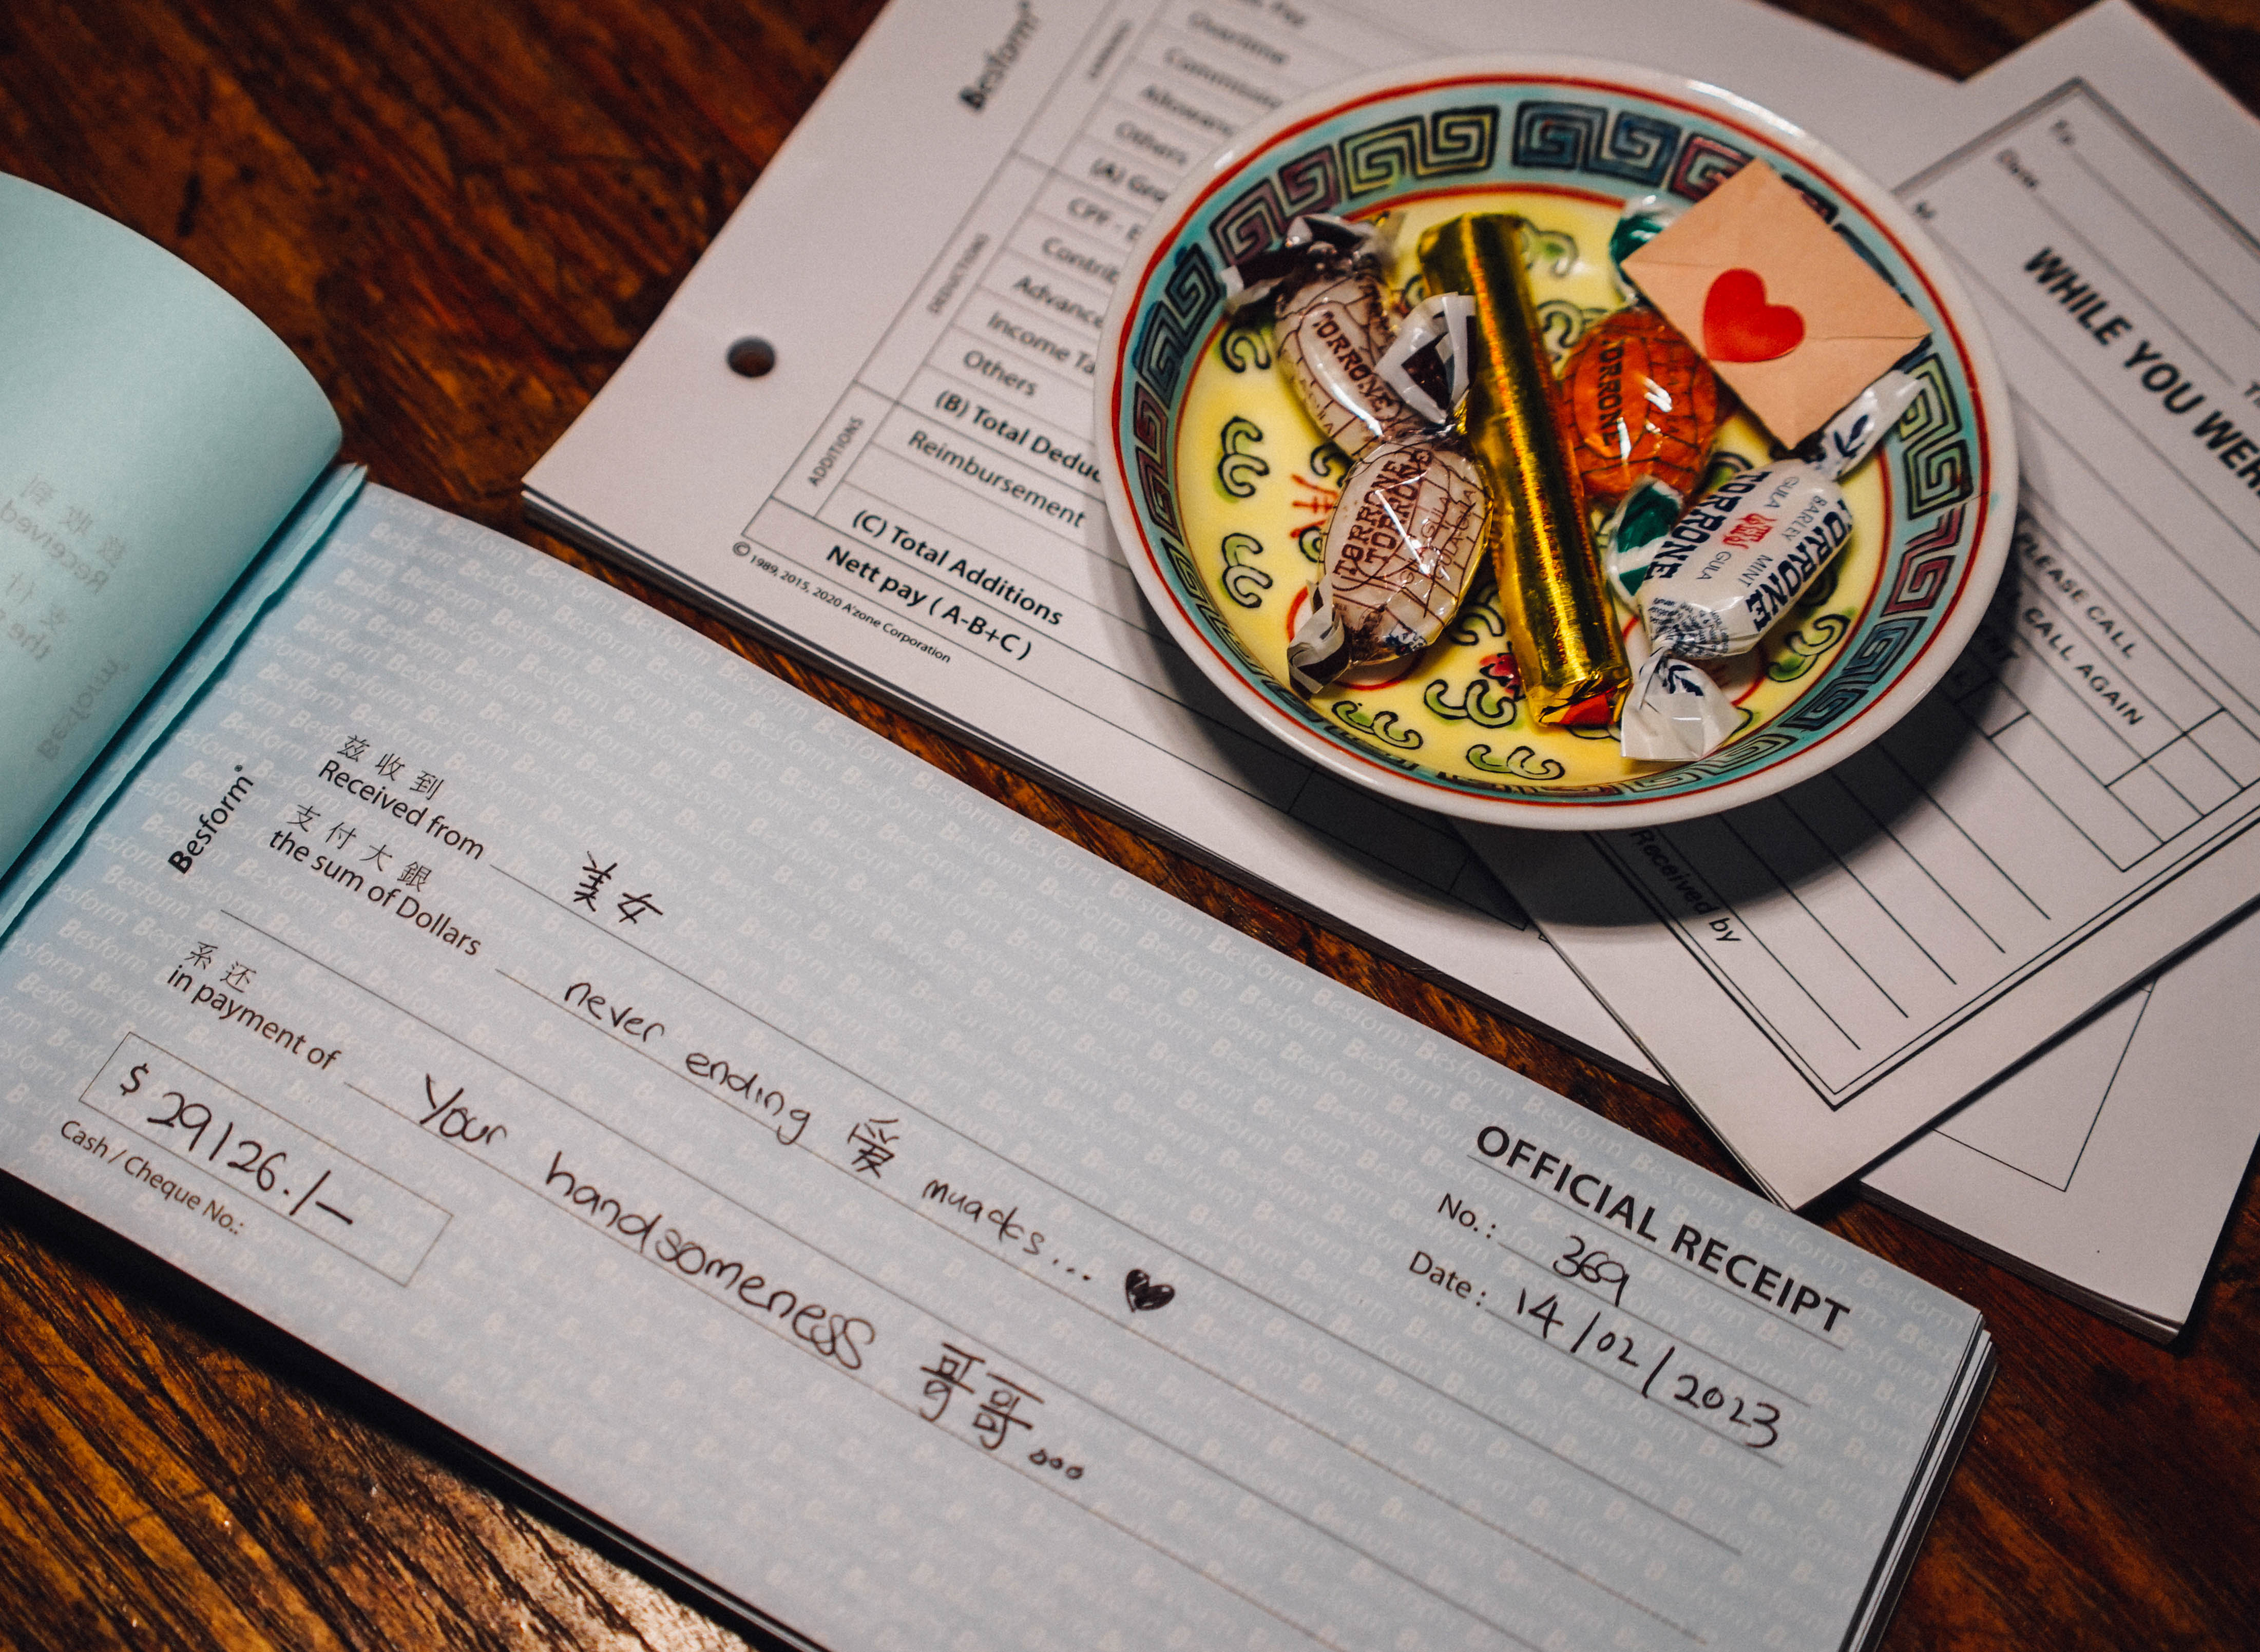 Besform®
EARNINGS
Overtime
Others
DEDUCTIONS
Advance
Others
(B) Total
ADDITIONS
Reimbursement
(C) Total Additions
Nett pay ( A-B+C )
© 1989, 2015, 2020 A'zone Corporation
To
Date
WHILE YOU WERE
PLEASE CALL
CALL AGAIN
Received by
TORRONE
TORRONE
TORRONE
TORRONE
TORRONE
GULA BARLEY MINT GULA
TORRONE
Besform®
OFFICIAL RECEIPT
No. : 369
Date : 14/02/2023
茲收到
Received from 美女
支付大銀
the sum of Dollars never ending 爱 muacks...
系还
in payment of Your handsomeness 哥哥...
$ 29126./—
Cash / Cheque No.: